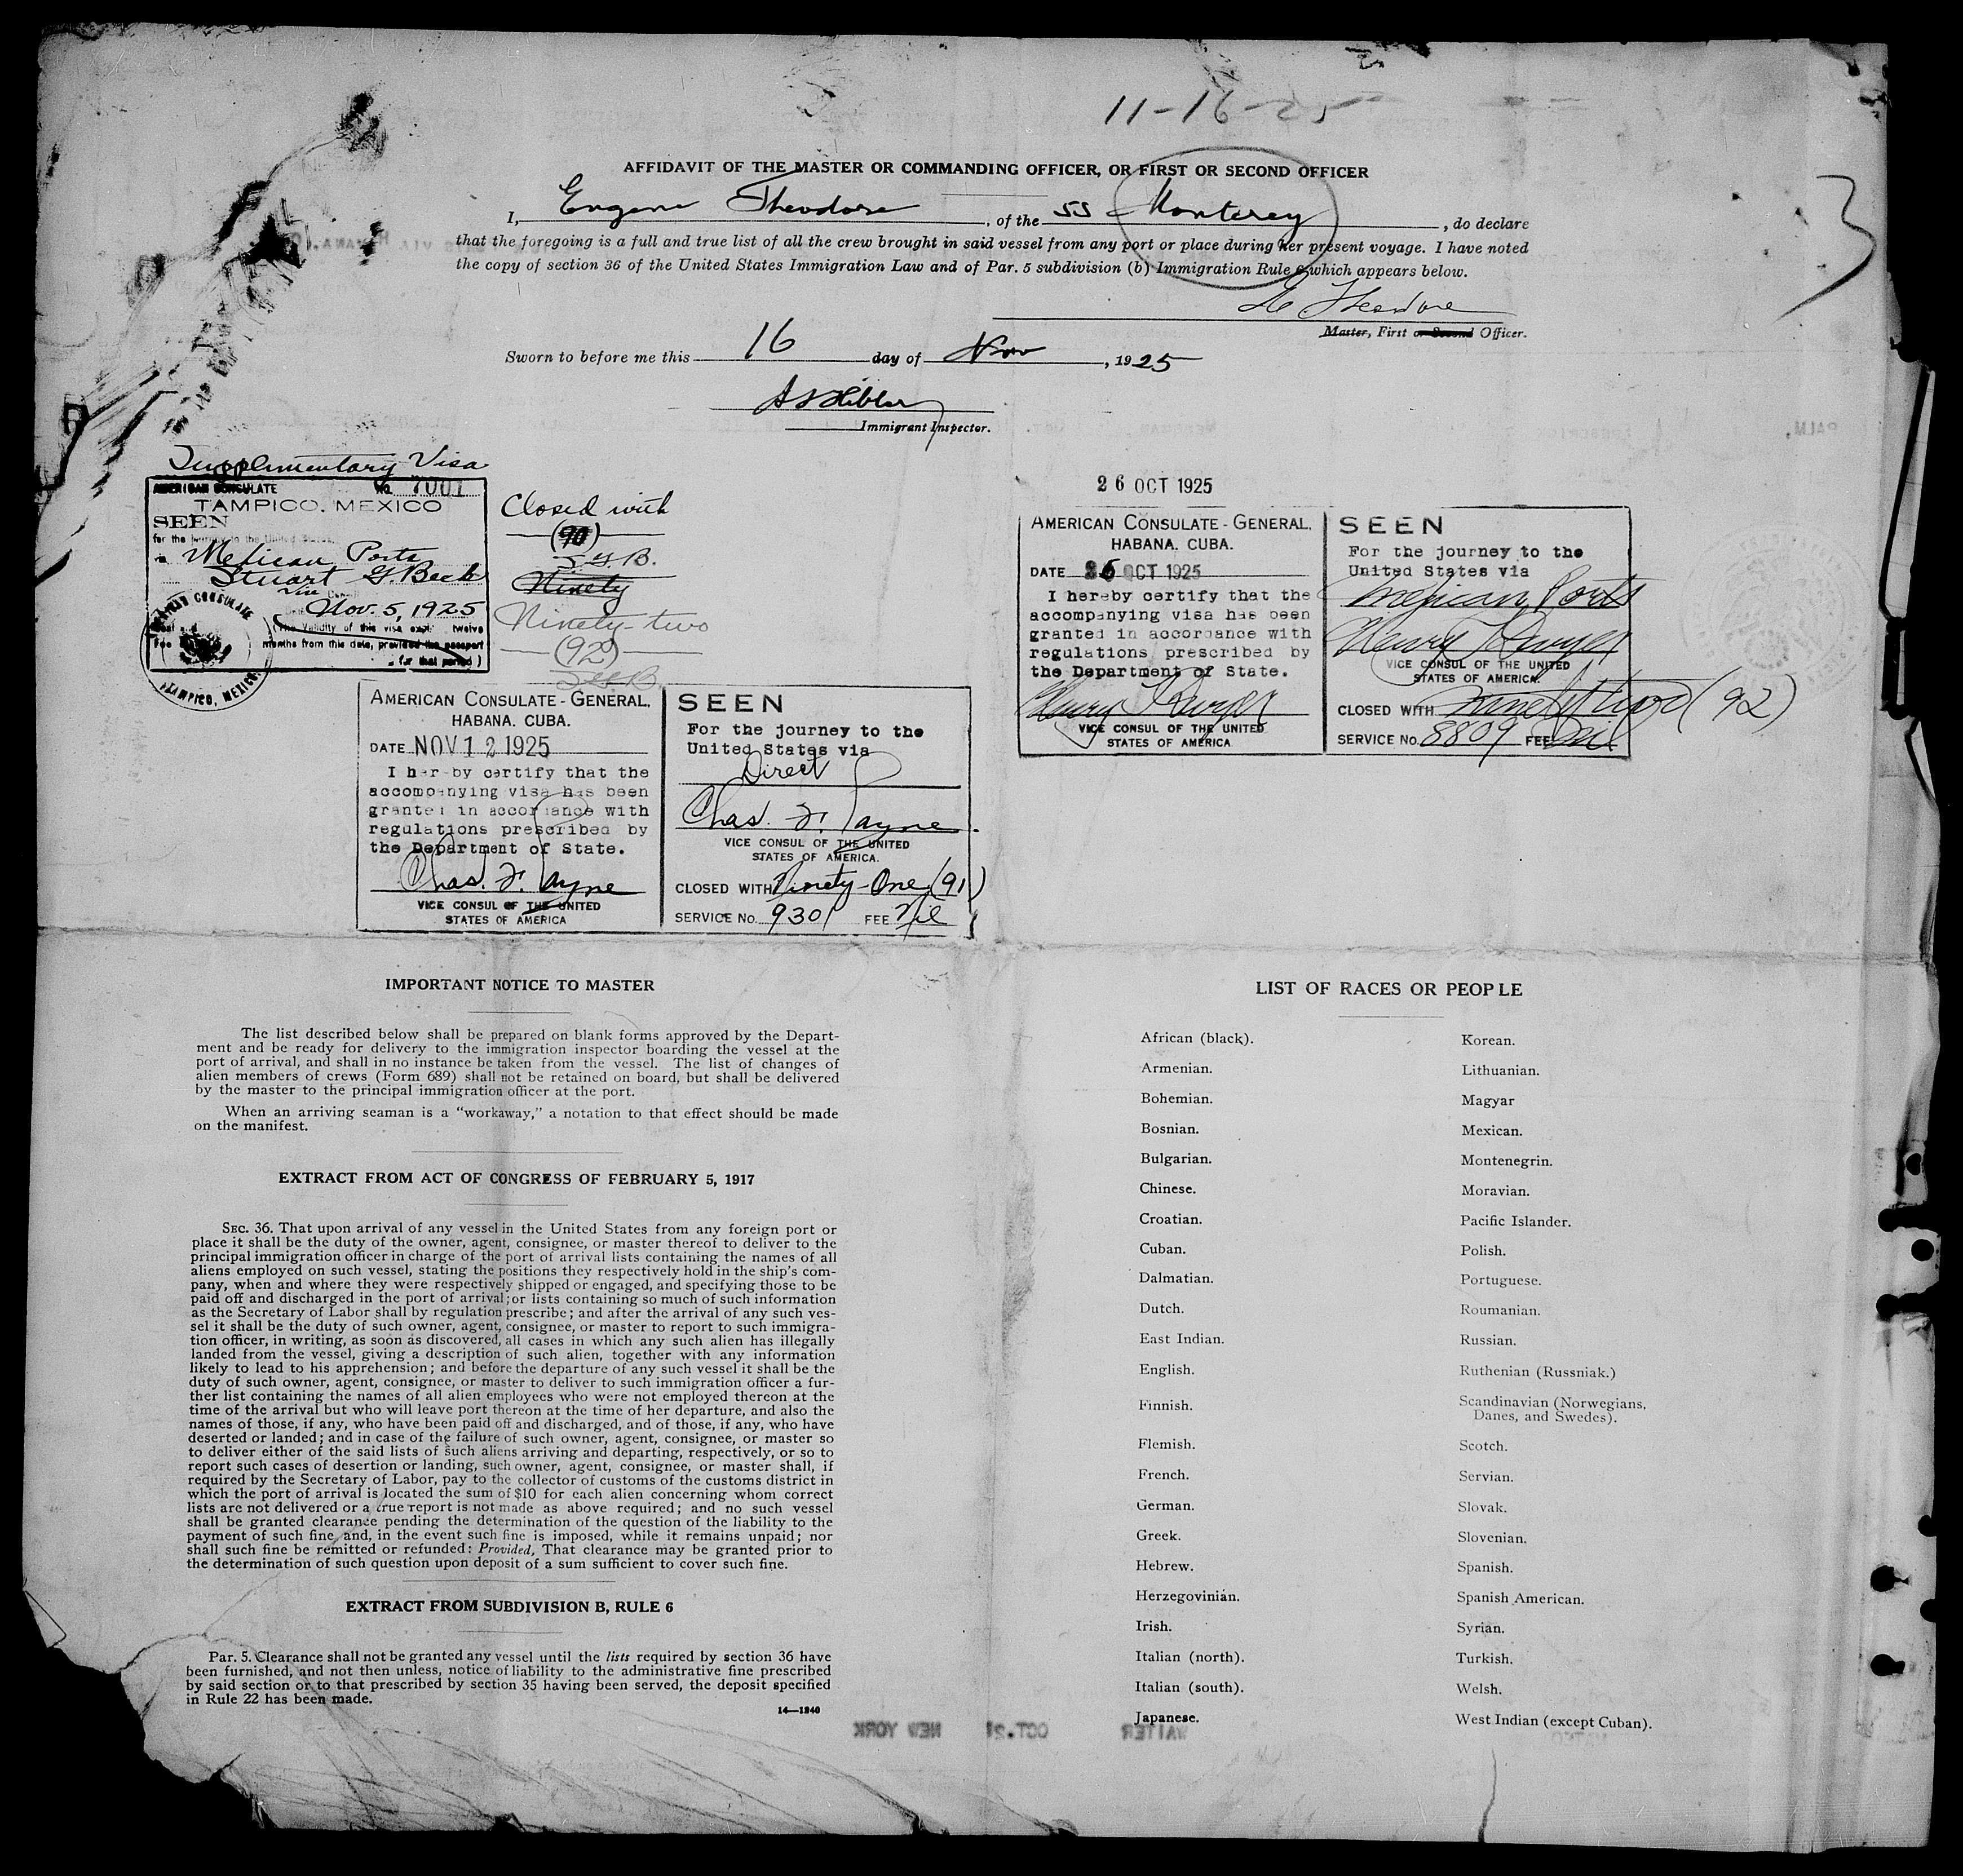 11-16-25
AFFIDAVIT OF THE MASTER OR COMMANDING OFFICER, OR FIRST OR SECOND OFFICER
I, Eugene Theodore, of the SS Monterey, do declare
that the foregoing is a full and true list of all the crew brought in said vessel from any port or place during her present voyage. I have noted
the copy of section 36 of the United States Immigration Law and of Par. 5 subdivision (b) Immigration Rule 6 which appears below.
3
Theodore
Master, First or Second Officer.
Sworn to before me this 16 day of Nov, 1925
Immigrant Inspector.
Supplimentary Visa
AMERICAN CONSULATE No. 7001
TAMPICO, MEXICO
SEEN
for the journey to the United States,
Mexican Ports
Stuart G. Beck
Vice
Nov. 5, 1925
(The Validity of this visa twelve
Fee months from this date, provided the passport
for that period)
AMERICAN CONSULATE
TAMPICO, MEXICO
Closed with
(90)
S.G.B.
Ninety
Ninety-two
(92)
S.G.B.
26 OCT 1925
AMERICAN CONSULATE-GENERAL,
HABANA. CUBA.
DATE 26 OCT 1925
I hereby certify that the
accompanying visa has been
granted in accordance with
regulations prescribed by
the Department of State.
VICE CONSUL OF THE UNITED
STATES OF AMERICA
SEEN
For the journey to the
United States via
Mexican Ports
VICE CONSUL OF THE UNITED
STATES OF AMERICA.
CLOSED WITH Ninety two (92)
SERVICE No. 8809 FEE
AMERICAN CONSULATE-GENERAL,
HABANA. CUBA.
DATE NOV 12 1925
I hereby certify that the
accompanying visa has been
granted in accordance with
regulations prescribed by
the Department of State.
Chas. F. Payne
VICE CONSUL OF THE UNITED
STATES OF AMERICA
SEEN
For the journey to the
United States via
Direct
Chas. F. Payne
VICE CONSUL OF THE UNITED
STATES OF AMERICA.
CLOSED WITH Ninety-One (91)
SERVICE No. 9301 FEE Nil
IMPORTANT NOTICE TO MASTER
The list described below shall be prepared on blank forms approved by the Depart-
ment and be ready for delivery to the immigration inspector boarding the vessel at the
port of arrival, and shall in no instance be taken from the vessel. The list of changes of
alien members of crews (Form 689) shall not be retained on board, but shall be delivered
by the master to the principal immigration officer at the port.
When an arriving seaman is a “workaway,” a notation to that effect should be made
on the manifest.
EXTRACT FROM ACT OF CONGRESS OF FEBRUARY 5, 1917
SEC. 36. That upon arrival of any vessel in the United States from any foreign port or
place it shall be the duty of the owner, agent, consignee, or master thereof to deliver to the
principal immigration officer in charge of the port of arrival lists containing the names of all
aliens employed on such vessel, stating the positions they respectively hold in the ship's com-
pany, when and where they were respectively shipped or engaged, and specifying those to be
paid off and discharged in the port of arrival; or lists containing so much of such information
as the Secretary of Labor shall by regulation prescribe; and after the arrival of any such ves-
sel it shall be the duty of such owner, agent, consignee, or master to report to such immigra-
tion officer, in writing, as soon as discovered, all cases in which any such alien has illegally
landed from the vessel, giving a description of such alien, together with any information
likely to lead to his apprehension; and before the departure of any such vessel it shall be the
duty of such owner, agent, consignee, or master to deliver to such immigration officer a fur-
ther list containing the names of all alien employees who were not employed thereon at the
time of the arrival but who will leave port thereon at the time of her departure, and also the
names of those, if any, who have been paid off and discharged, and of those, if any, who have
deserted or landed; and in case of the failure of such owner, agent, consignee, or master so
to deliver either of the said lists of such aliens arriving and departing, respectively, or so to
report such cases of desertion or landing, such owner, agent, consignee, or master shall, if
required by the Secretary of Labor, pay to the collector of customs of the customs district in
which the port of arrival is located the sum of $10 for each alien concerning whom correct
lists are not delivered or a true report is not made as above required; and no such vessel
shall be granted clearance pending the determination of the question of the liability to the
payment of such fine, and, in the event such fine is imposed, while it remains unpaid; nor
shall such fine be remitted or refunded: Provided, That clearance may be granted prior to
the determination of such question upon deposit of a sum sufficient to cover such fine.
EXTRACT FROM SUBDIVISION B, RULE 6
Par. 5. Clearance shall not be granted any vessel until the lists required by section 36 have
been furnished, and not then unless, notice of liability to the administrative fine prescribed
by said section or to that prescribed by section 35 having been served, the deposit specified
in Rule 22 has been made.
14—1240
LIST OF RACES OR PEOPLE
African (black).
Armenian.
Bohemian.
Bosnian.
Bulgarian.
Chinese.
Croatian.
Cuban.
Dalmatian.
Dutch.
East Indian.
English.
Finnish.
Flemish.
French.
German.
Greek.
Hebrew.
Herzegovinian.
Irish.
Italian (north).
Italian (south).
Japanese.
Korean.
Lithuanian.
Magyar
Mexican.
Montenegrin.
Moravian.
Pacific Islander.
Polish.
Portuguese.
Roumanian.
Russian.
Ruthenian (Russniak.)
Scandinavian (Norwegians,
Danes, and Swedes).
Scotch.
Servian.
Slovak.
Slovenian.
Spanish.
Spanish American.
Syrian.
Turkish.
Welsh.
West Indian (except Cuban).
WAITER OCT. NEW YORK